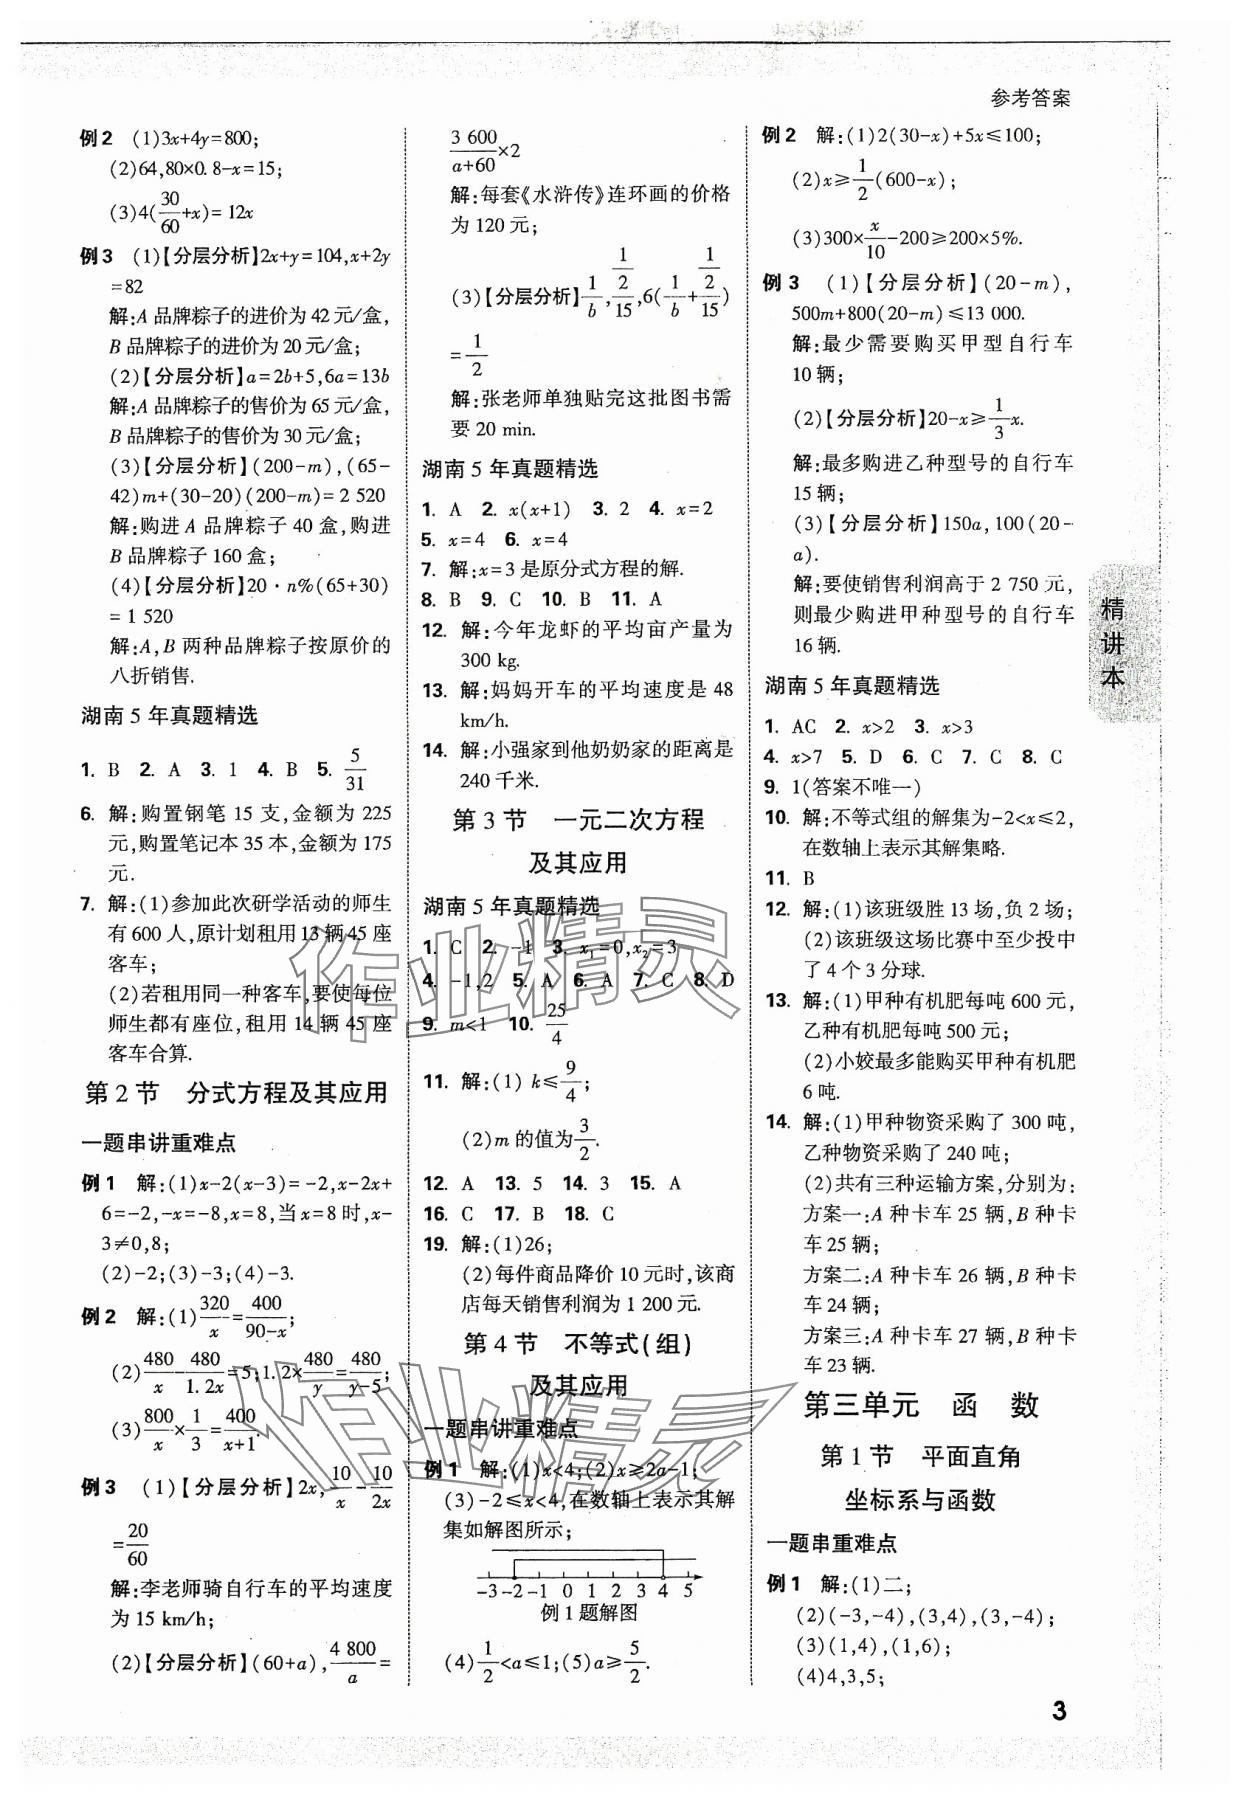 参考答案
例2 (1)3x+4y=800;
(2)64,80×0.8-x=15;
(3)4(30/60+x)=12x
例3 (1)【分层分析】2x+y=104,x+2y
=82
解:A品牌粽子的进价为42元/盒,
B品牌粽子的进价为20元/盒;
(2)【分层分析】a=2b+5,6a=13b
解:A品牌粽子的售价为65元/盒,
B品牌粽子的售价为30元/盒;
(3)【分层分析】(200-m),(65-
42)m+(30-20)(200-m)=2 520
解:购进A品牌粽子40盒,购进
B品牌粽子160盒;
(4)【分层分析】20·n%(65+30)
=1 520
解:A,B两种品牌粽子按原价的
八折销售.
湖南5年真题精选
1. B 2. A 3. 1 4. B 5. 5/31
6. 解:购置钢笔15支,金额为225
元,购置笔记本35本,金额为175
元.
7. 解:(1)参加此次研学活动的师生
有600人,原计划租用13辆45座
客车;
(2)若租用同一种客车,要使每位
师生都有座位,租用14辆45座
客车合算.
第2节 分式方程及其应用
一题串讲重难点
例1 解:(1)x-2(x-3)=-2,x-2x+
6=-2,-x=-8,x=8,当x=8时,x-
3≠0,8;
(2)-2;(3)-3;(4)-3.
例2 解:(1)320/x=400/(90-x);
(2)480/x-480/1.2x=5;1.2×480/y=480/(y-5);
(3)800/x×1/3=400/(x+1).
例3 (1)【分层分析】2x,10/x-10/2x
=20/60
解:李老师骑自行车的平均速度
为15 km/h;
(2)【分层分析】(60+a),4 800/a=
3 600/(a+60)×2
解:每套《水浒传》连环画的价格
为120元;
(3)【分层分析】1/b,(1/2)/15,6(1/b+(1/2)/15)
=1/2
解:张老师单独贴完这批图书需
要20 min.
湖南5年真题精选
1. A 2. x(x+1) 3. 2 4. x=2
5. x=4 6. x=4
7. 解:x=3是原分式方程的解.
8. B 9. C 10. B 11. A
12. 解:今年龙虾的平均亩产量为
300 kg.
13. 解:妈妈开车的平均速度是48
km/h.
14. 解:小强家到他奶奶家的距离是
240千米.
第3节 一元二次方程
及其应用
湖南5年真题精选
1. C 2. -1 3. x₁=0,x₂=3
4. -1,2 5. A 6. A 7. C 8. D
9. m<1 10. 25/4
11. 解:(1) k≤9/4;
(2)m的值为3/2.
12. A 13. 5 14. 3 15. A
16. C 17. B 18. C
19. 解:(1)26;
(2)每件商品降价10元时,该商
店每天销售利润为1 200元.
第4节 不等式(组)
及其应用
一题串讲重难点
例1 解:(1)x<4;(2)x≥2a-1;
(3)-2≤x<4,在数轴上表示其解
集如解图所示;
-3 -2 -1 0 1 2 3 4 5
例1题解图
(4)1/2<a≤1;(5)a≥5/2.
例2 解:(1)2(30-x)+5x≤100;
(2)x≥1/2(600-x);
(3)300×x/10-200≥200×5%.
例3 (1)【分层分析】(20-m),
500m+800(20-m)≤13 000.
解:最少需要购买甲型自行车
10辆;
(2)【分层分析】20-x≥1/3x.
解:最多购进乙种型号的自行车
15辆;
(3)【分层分析】150a,100(20-
a).
解:要使销售利润高于2 750元,
则最少购进甲种型号的自行车
16辆.
湖南5年真题精选
1. AC 2. x>2 3. x>3
4. x>7 5. D 6. C 7. C 8. C
9. 1(答案不唯一)
10. 解:不等式组的解集为-2<x≤2,
在数轴上表示其解集略.
11. B
12. 解:(1)该班级胜13场,负2场;
(2)该班级这场比赛中至少投中
了4个3分球.
13. 解:(1)甲种有机肥每吨600元,
乙种有机肥每吨500元;
(2)小姣最多能购买甲种有机肥
6吨.
14. 解:(1)甲种物资采购了300吨,
乙种物资采购了240吨;
(2)共有三种运输方案,分别为:
方案一:A种卡车25辆,B种卡
车25辆;
方案二:A种卡车26辆,B种卡
车24辆;
方案三:A种卡车27辆,B种卡
车23辆.
第三单元 函 数
第1节 平面直角
坐标系与函数
一题串重难点
例1 解:(1)二;
(2)(-3,-4),(3,4),(3,-4);
(3)(1,4),(1,6);
(4)4,3,5;
精讲本
3
作业精灵
作业精灵